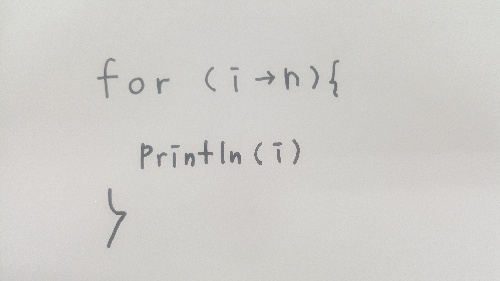 for (i→n){
Println(i)
}